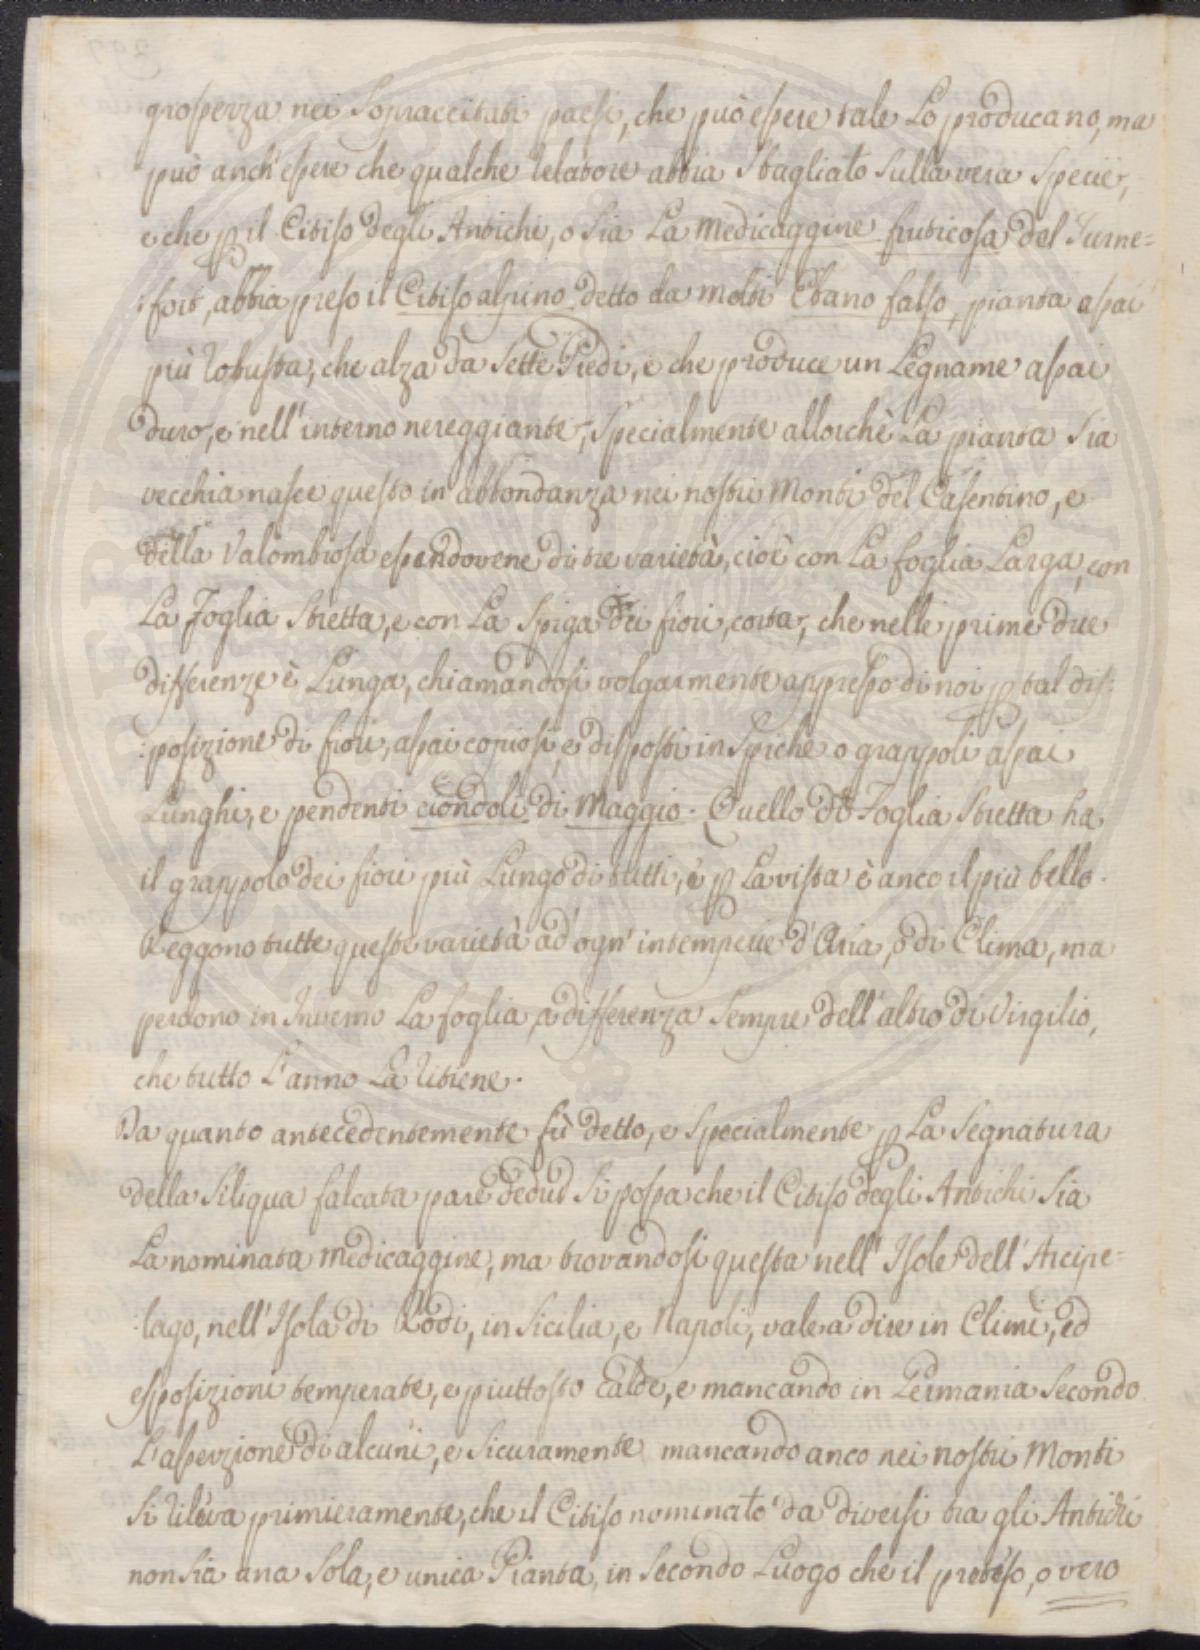 grossezza nei sopraccitati paesi, che può essere tale Lo producano, ma
può anch'essere che qualche relatore abbia sbagliato sulla vera specie,
e che p il Citiso degli Antichi, o sia La medicaggine fruticosa del Turne=
:fort, abbia preso il Citiso alpino detto da molti Ebano falso, pianta assai
più robusta, che alza da sette Piedi, e che produce un Legname assai
duro, e nell'interno nereggiante, specialmente allorchè La pianta sia
vecchia nasce questo in abbondanza nei nostri monti del Casentino, e
della Valombrosa essendovene di tre varietà, cioè con La foglia Larga, con
La foglia stretta, e con La spiga dei fiori, corta, che nelle prime due
differenze è Lunga, chiamandosi volgarmente appresso di noi p tal dis:
:posizione di fiori, assai copiosi, e disposti in spiche o grappoli assai
Lunghi, e pendenti ciondoli di maggio. Quello di Foglia stretta ha
il grappolo dei fiori più Lungo di tutti, e p La vista è anco il più bello.
Reggono tutte queste varietà ad ogn'intemperie d'Aria, o di Clima, ma
perdono in Inverno La foglia, a differenza sempre dell'altro di Virgilio,
che tutto L'anno La ritiene.
Da quanto antecedentemente fù detto, e specialmente p La segnatura
della siliqua falcata pare dedur si possa che il Citiso degli Antichi sia
La nominata medicaggine, ma trovandosi questa nell'Isole dell'Arcipe=
:lago, nell'Isola di Rodi, in Sicilia, e Napoli, vale a dire in Climi, ed
esposizioni temperate, e piuttosto Calde, e mancando in Germania secondo
L'asserzione di alcuni, e sicuramente mancando anco nei nostri Monti
si rileva primieramente, che il Citiso nominato da diversi tra gli Antichi
non sia una sola, e unica Pianta, in secondo Luogo che il preteso, o vero